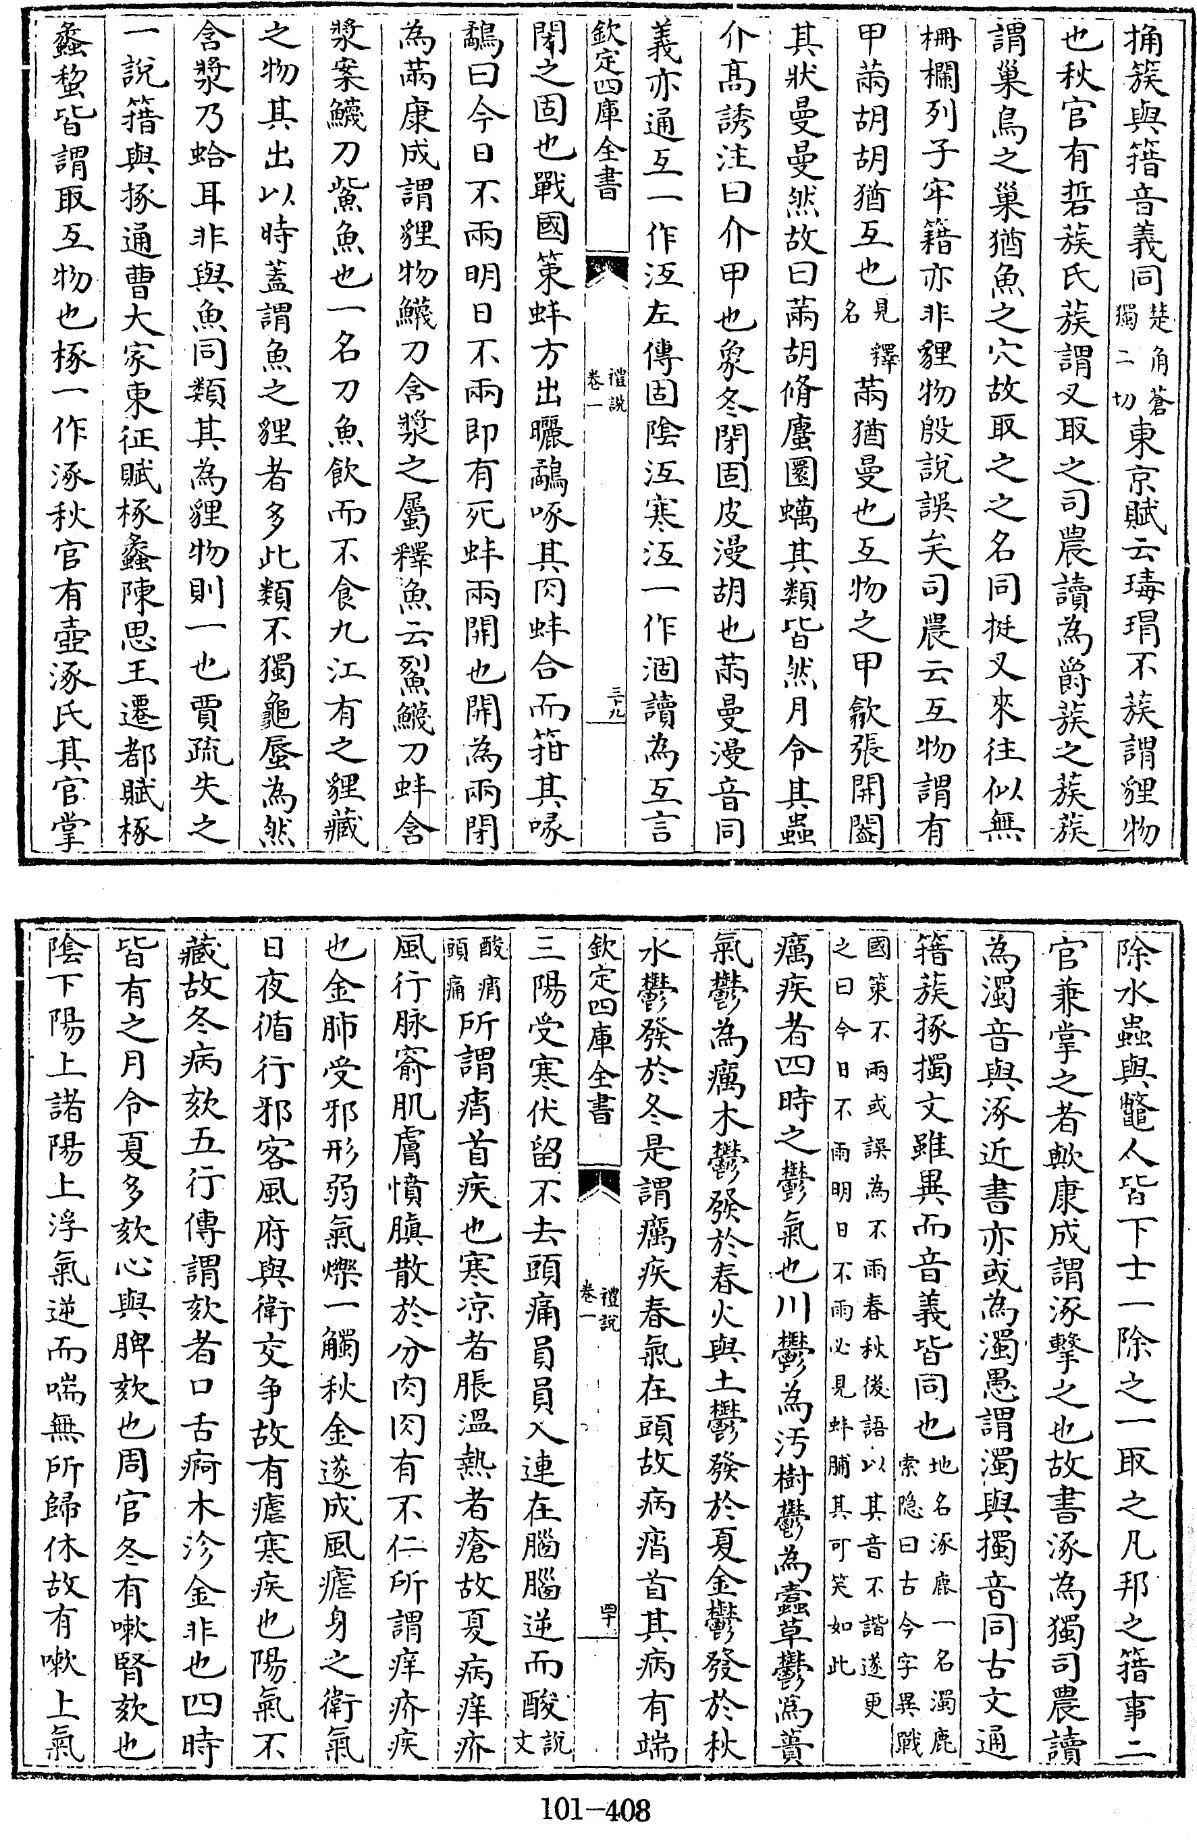 捔簇與籍音義同楚角蒼獨二切東京賦云瑇瑁不蔟謂貍物
也秋官有硩蔟氏蔟謂叉取之司農讀為爵蔟之蔟蔟
謂巢鳥之巢猶魚之穴故取之之名同挺叉來往似無
柵欄列子牢籍亦非貍物殷說誤矣司農云互物謂有
甲㒼胡胡猶互也見釋名㒼猶曼也互物之甲歙張開闔
其狀曼曼然故曰㒼胡脩蠯圜蠣其類皆然月令其蟲
介高誘注曰介甲也象冬閉固皮漫胡也㒼曼漫音同
義亦通互一作沍左傳固陰沍寒沍一作涸讀為互言
欽定四庫全書
禮說
卷一
三十九
閉之固也戰國策蚌方出曬鷸啄其肉蚌合而箝其喙
鷸曰今日不兩明日不兩即有死蚌兩開也開為兩閉
為㒼康成謂貍物鱴刀含漿之屬釋魚云鮤鱴刀蚌含
漿案鱴刀鮆魚也一名刀魚飲而不食九江有之貍藏
之物其出以時蓋謂魚之貍者多此類不獨龜蜃為然
含漿乃蛤耳非與魚同類其為貍物則一也賈疏失之
一說籍與㧻通曹大家東征賦椓蠡陳思王遷都賦椓
蠡蛪皆謂取互物也椓一作涿秋官有壺涿氏其官掌
除水蟲與鼈人皆下士一除之一取之凡邦之籍事二
官兼掌之者歟康成謂涿擊之也故書涿為獨司農讀
為濁音與涿近書亦或為濁愚謂濁與擉音同古文通
籍蔟㧻擉文雖異而音義皆同也地名涿鹿一名濁鹿索隱曰古今字異戰
國策不兩或誤為不雨春秋後語以其音不諧遂更之曰今日不雨明日不雨必見蚌脯其可笑如此
癘疾者四時之鬱氣也川鬱為汚樹鬱為蠹草鬱為蕢
氣鬱為癘木鬱發於春火與土鬱發於夏金鬱發於秋
水鬱發於冬是謂癘疾春氣在頭故病痟首其病有端
欽定四庫全書
禮說
卷一
四十
三陽受寒伏留不去頭痛員員入連在腦腦逆而酸說文
酸痟頭痛所謂痟首疾也寒涼者脹溫熱者瘡故夏病痒疥
風行脉窬肌膚憤䐜散於分肉肉有不仁所謂痒疥疾
也金肺受邪形弱氣爍一觸秋金遂成風瘧身之衛氣
日夜循行邪客風府與衛交争故有瘧寒疾也陽氣不
藏故冬病欬五行傳謂欬者口舌痾木沴金非也四時
皆有之月令夏多欬心與脾欬也周官冬有嗽腎欬也
陰下陽上諸陽上浮氣逆而喘無所歸休故有嗽上氣
101-408